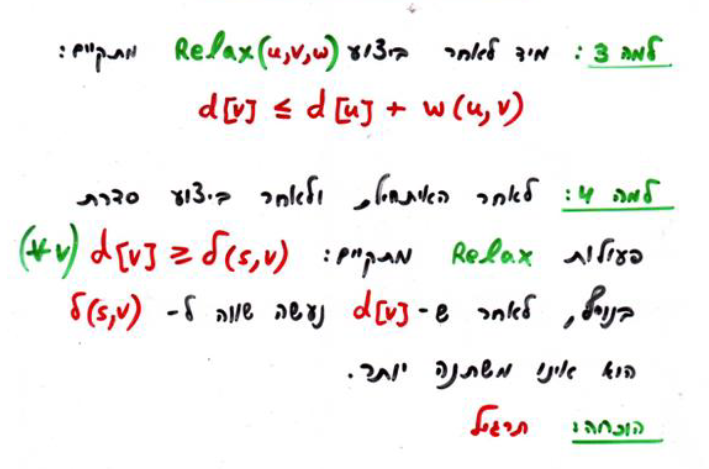 למה 3: מיד לאחר ביצוע Relax(u,v,w) מתקיים:
d[v] ≤ d[u] + w(u,v)
למה 4: לאחר האיתחול, ולאחר ביצוע סדרת
פעולות Relax מתקיים: d[v] ≥ δ(s,v) (∀v)
בנוסף, לאחר ש-d[v] נעשה שווה ל-δ(s,v)
הוא אינו משתנה יותר.
הוכחה: תרגיל